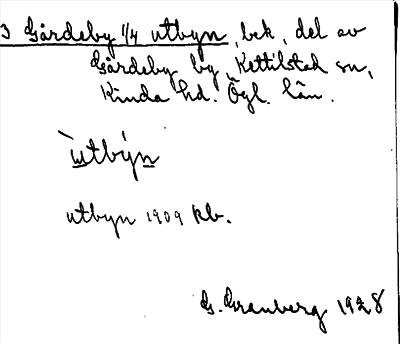 3 Gårdeby 1/4 utbyn, bek, del av
Gårdeby by, Kettilstad sn,
Kinda hd. Ögl. län.
ùtbýn
utbyn 1909 kb.
G. Granberg 1928